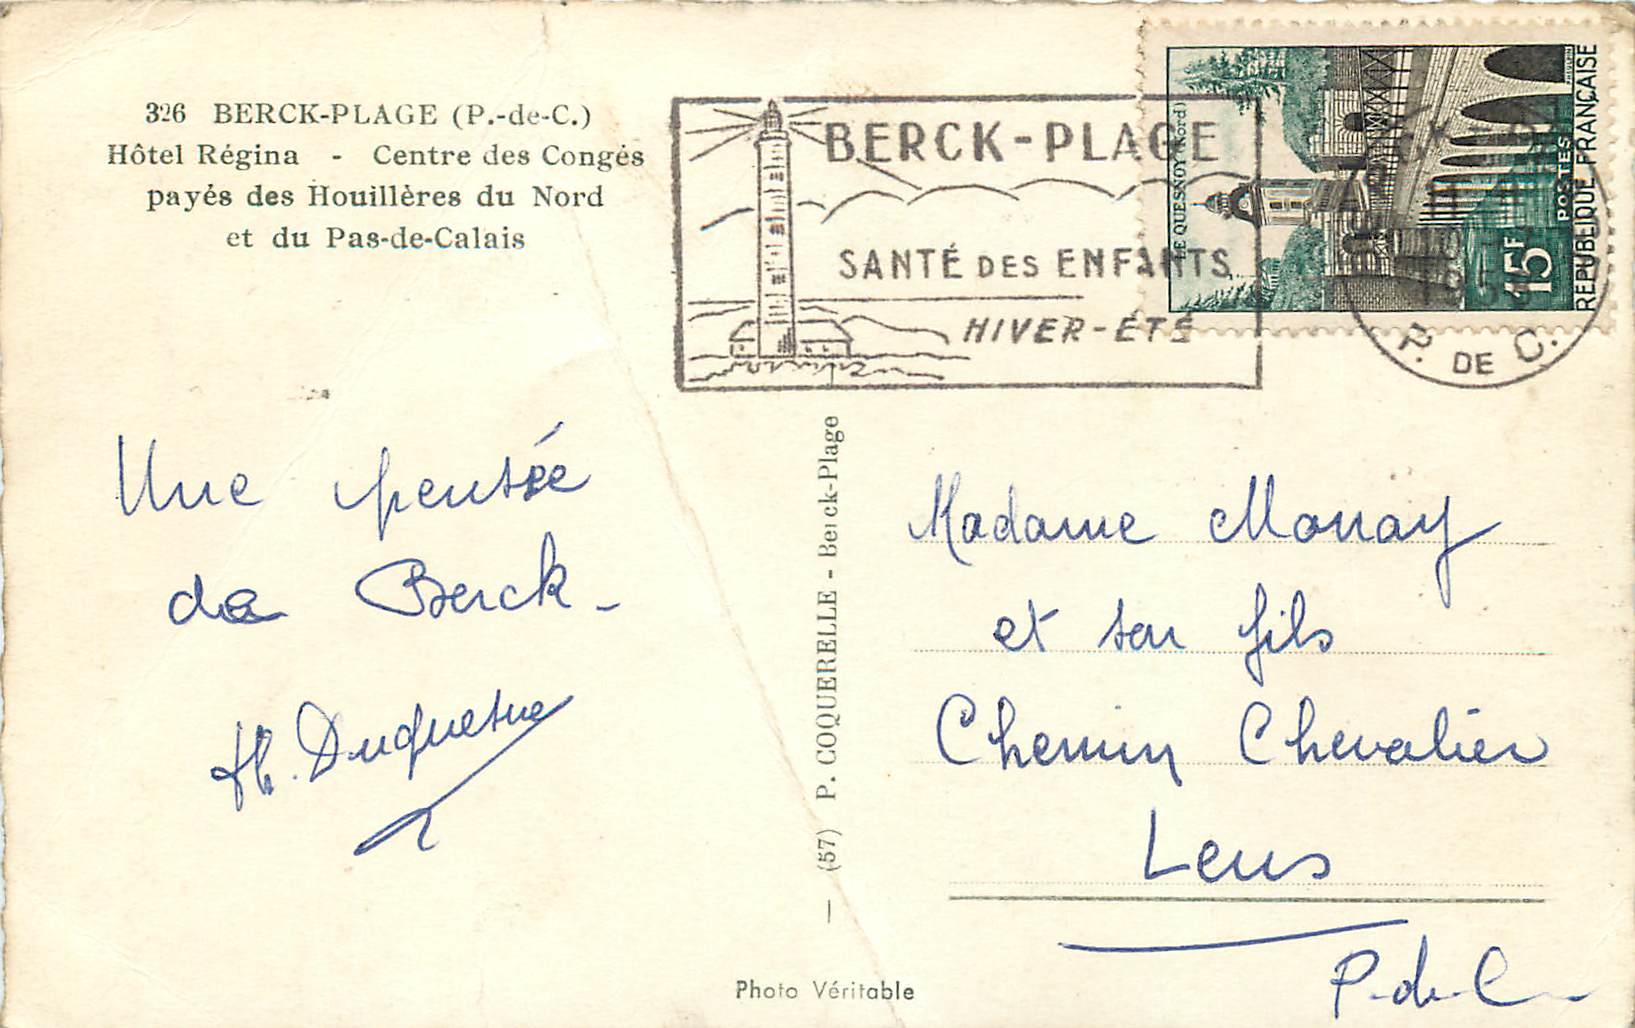 326 BERCK-PLAGE (P.-de-C.)
Hôtel Régina - Centre des Congés
payés des Houillères du Nord
et du Pas-de-Calais
BERCK-PLAGE
SANTÉ DES ENFANTS
HIVER-ÉTÉ
LE QUESNOY (Nord)
15F
POSTES
RÉPUBLIQUE FRANÇAISE
P. DE C.
Une pensée
de Berck -
Duquesne
— (57) P. COQUERELLE - Berck-Plage
Madame Monay
et son fils
Chemin Chevalier
Lens
P-de-C
Photo Véritable